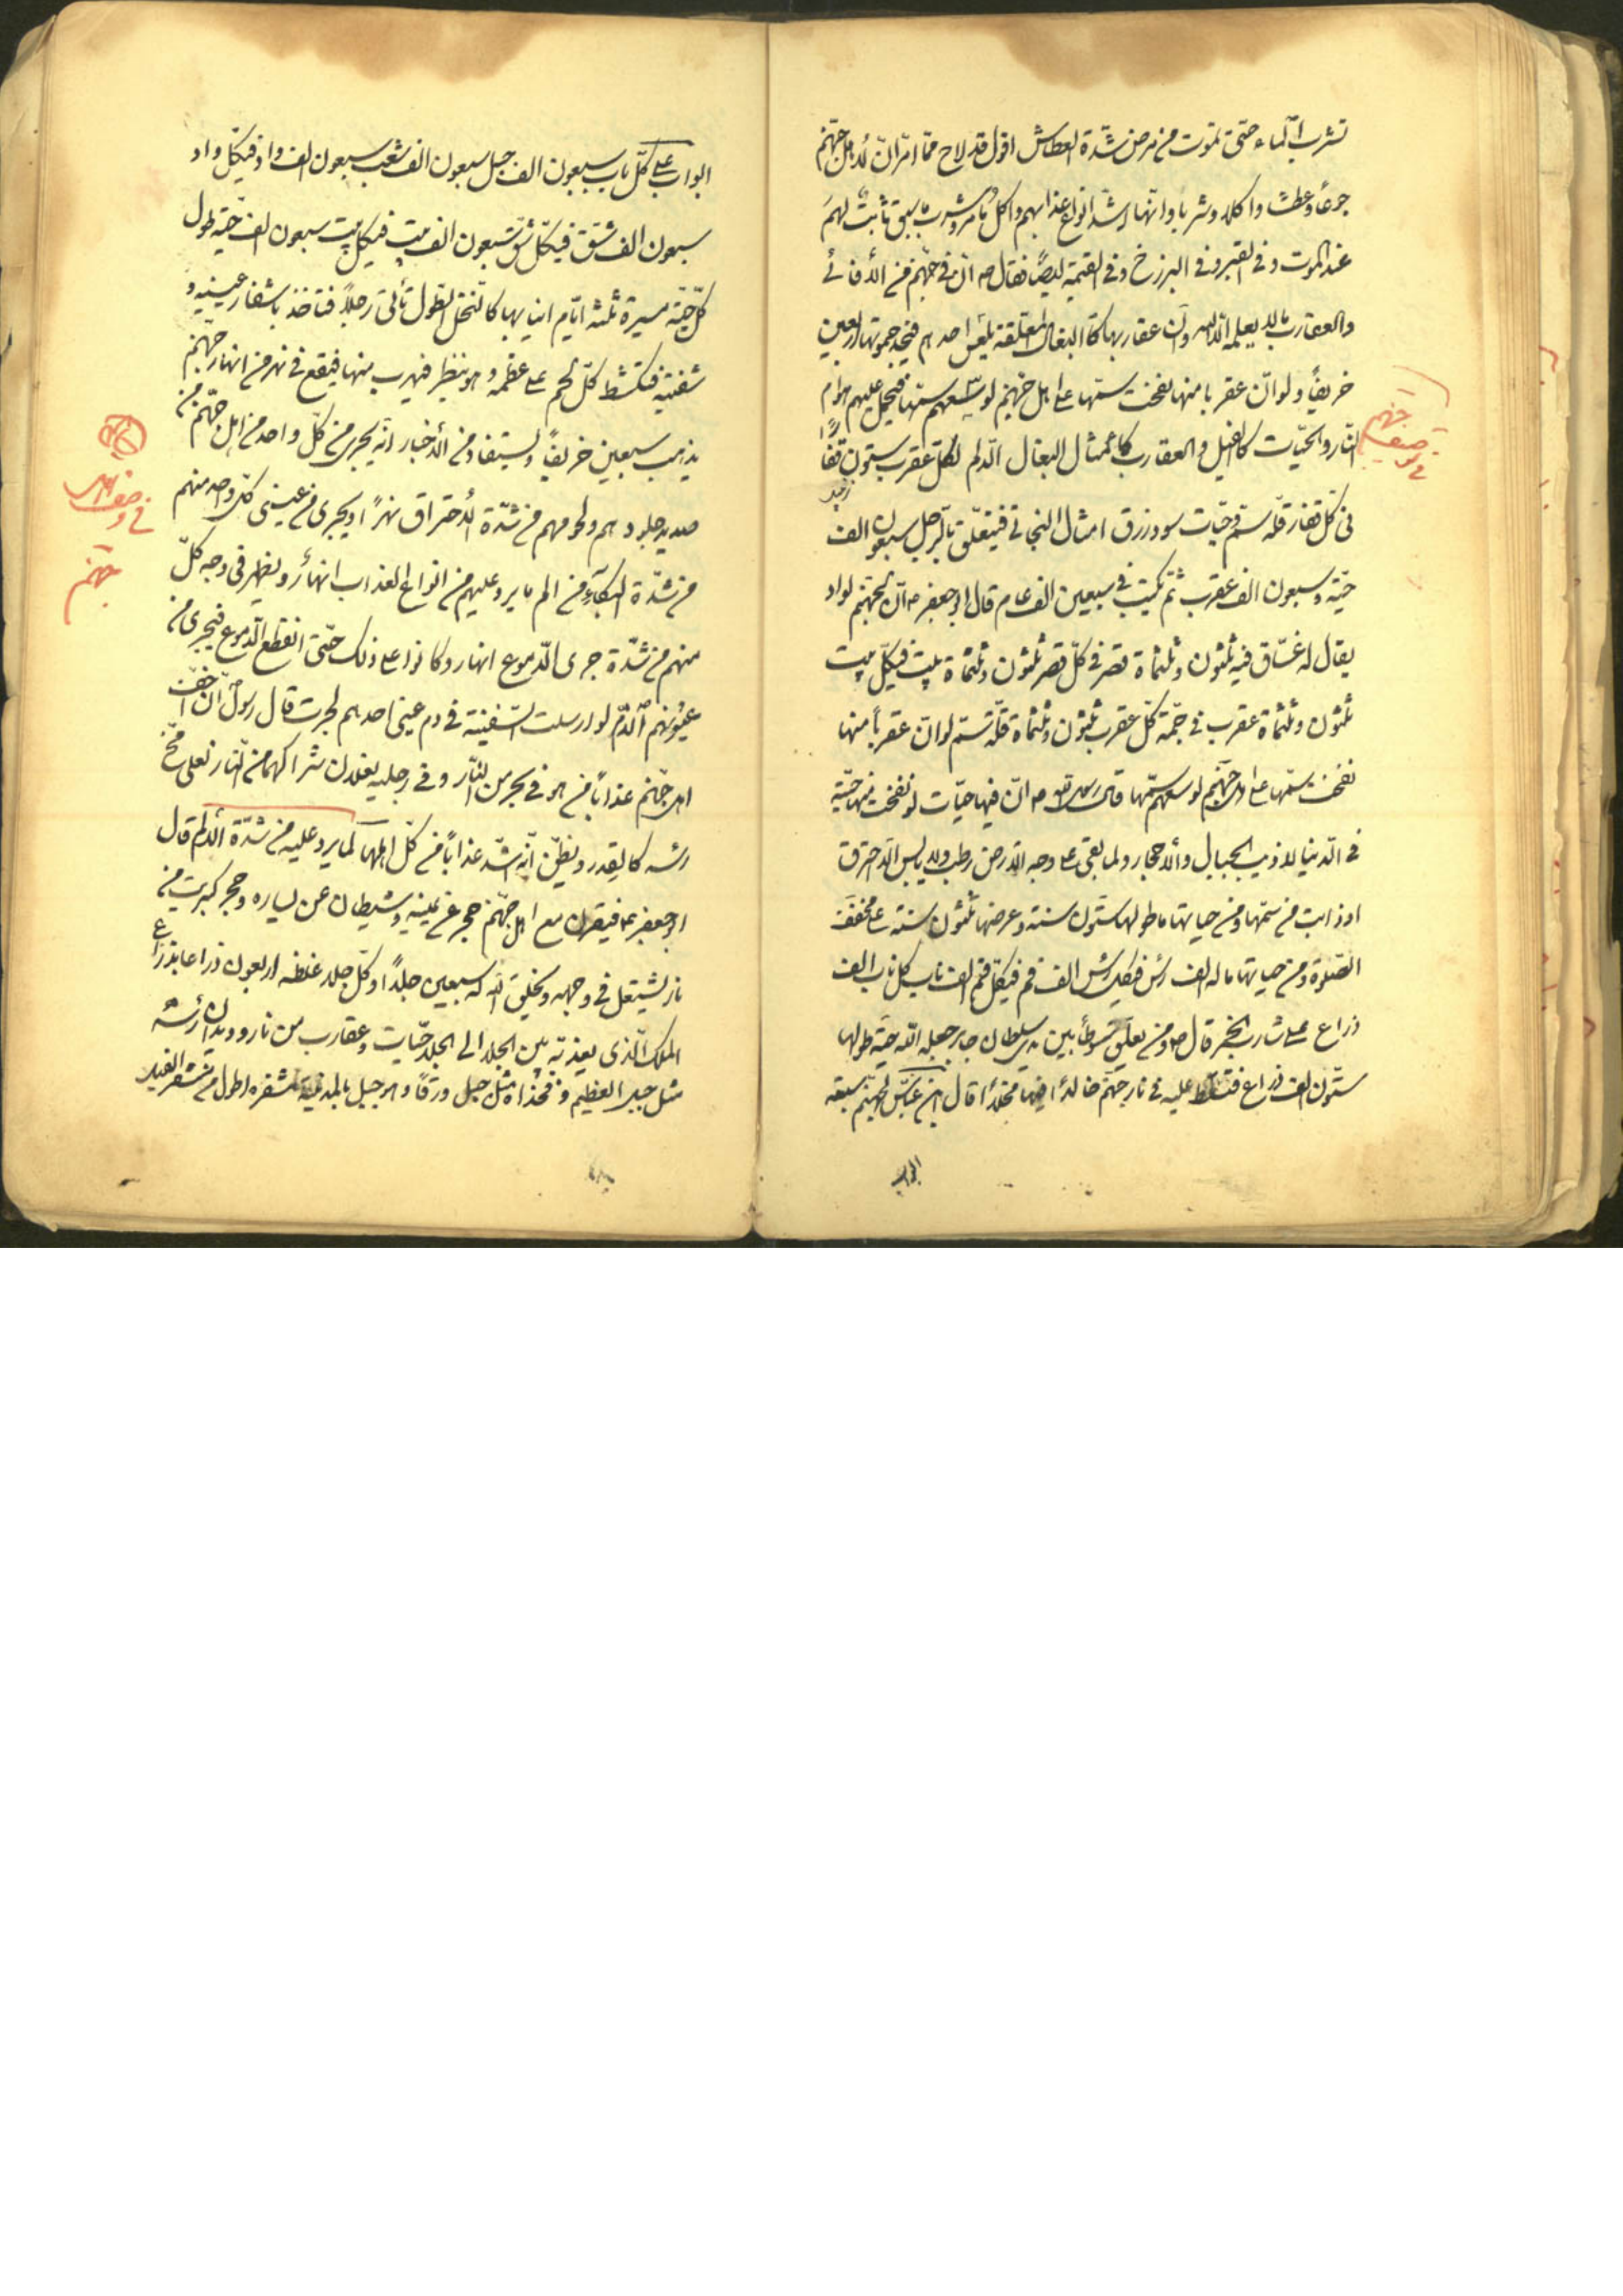 تشرب الماء حتى تموت من مرض شدة العطاش اقول قد لاح مما مر ان لاهل جهنم
جوعًا وعطشًا واكلا وشربا وانها اشد انواع عذابهم واكل ما مر وشرب ما سبق ثابت لهم
عند الموت وفى القبر وفى البرزخ وفى القيمة ايضًا فقال ص ان فى جهنم من الافاعى
والعقارب ما لا يعلمه الا الله وان عقاربها كالبغال المعلقة يلسع احدهم فيجد حموتها اربعين
خريفًا ولو ان عقربا منها نفخت سمها على اهل جهنم لوسعهم سمها فيحمل عليهم هوام
النار والحيات كالفيل والعقارب كامثال البغال الدلم لكل عقرب ستون فقارًا
فى كل فقار قلة سم وحيات سود زرق امثال النجاتى فيتعلق بالرجل سبعون الف
حية وسبعون الف عقرب ثم يكب فى سبعين الف عام قال ابو جعفر ع ان لجهنم لواد
يقال له غساق فيه ثلثون وثلثماة قصر فى كل قصر ثلثون وثلثماة بيت فى كل بيت
ثلثون وثلثماة عقرب فى حمة كل عقرب ثلثون وثلثماة قلة سم لو ان عقربًا منها
نفخت سمها على اهل جهنم لوسعهم سمها قال رسول الله ص ان فيها حيات لو نفخت منها حية
فى الدنيا لاذيب الجبال والاحجار ولما بقى على وجه الارض رطب ولا يابس الا احترق
او ذابت من سمها ومن حياتها ما طولها ستون سنة وعرضها ثلثون سنة على مخفف
الصلوة ومن حياتها ما له الف رأس فى كل رأس الف فم فى كل فم الف ناب كل ناب الف
ذراع على شارب الخمر قال ص ومن تعلق سوطًا بين يدى سلطان جابر جعله الله حية طولها
ستون الف ذراع فتسلط عليه فى نار جهنم خالدًا فيها مخلدًا قال ابن عباس لجهنم سبعة
ابواب
فى وصف
جهنم
ابواب على كل باب سبعون الف جبل سبعون الف شعب سبعون الف واد فى كل واد
سبعون الف شق فى كل شق سبعون الف بيت فى كل بيت سبعون الف حية طول
كل حية مسيرة ثلثة ايام انيابها كالنخل الطول تأتى رجلًا فتاخذ باشفار عينيه و
شفتيه فتكشط كل لحم على عظمه وهو ينظر فيهرب منها فيقع فى نهر من انهار جهنم
يذهب سبعين خريفًا ويستفاد من الاخبار انه يجرى من كل واحد من اهل جهنم من
صديد جلودهم ولحومهم من شدة الاحتراق نهرًا ويجرى من عينى كل واحد منهم
من شدة البكاء من الم ما يرد عليهم من انواع العذاب انهار ويظهر فى وجه كل
منهم من شدة جرى الدموع انهار وكانوا على ذلك حتى انقطع الدموع فيجرى من
عيونهم الدم لو ارسلت السفينة فى دم عينى احدهم لجرت قال رسول ص ان اخف
اهل جهنم عذابًا من هو فى بحر من النار وفى رجليه نعلان شراكهما من النار تغلى مخ
رأسه كالقدر ويظن انه اشد عذابًا من كل اهلها لما يرد عليه من شدة الالم قال
ابو جعفر ع فيقرن مع اهل جهنم حجر عن يمينه وشيطان عن يساره وحجر كبريت من
نار يشتعل فى وجهه ويخلق الله له سبعين جلدًا وكل جلد غلظه اربعون ذراعا بذراع
الملك الذى يعذبه بين الجلد الى الجلد حيات وعقارب من نار وديدان رأسه
مثل جبل العظيم وفخذاه مثل جبل ورقًا وهو جبل بالمدينة مشفره اطول من مشفر الفيل
فى وصف اهل
جهنم